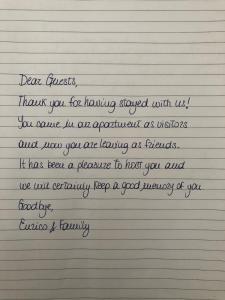 Dear Guests,
Thank you for having stayed with us!
You came in our apartment as visitors
and now you are leaving as friends.
It has been a pleasure to host you and
we will certainly keep a good memory of you
Goodbye,
Enrico & Family